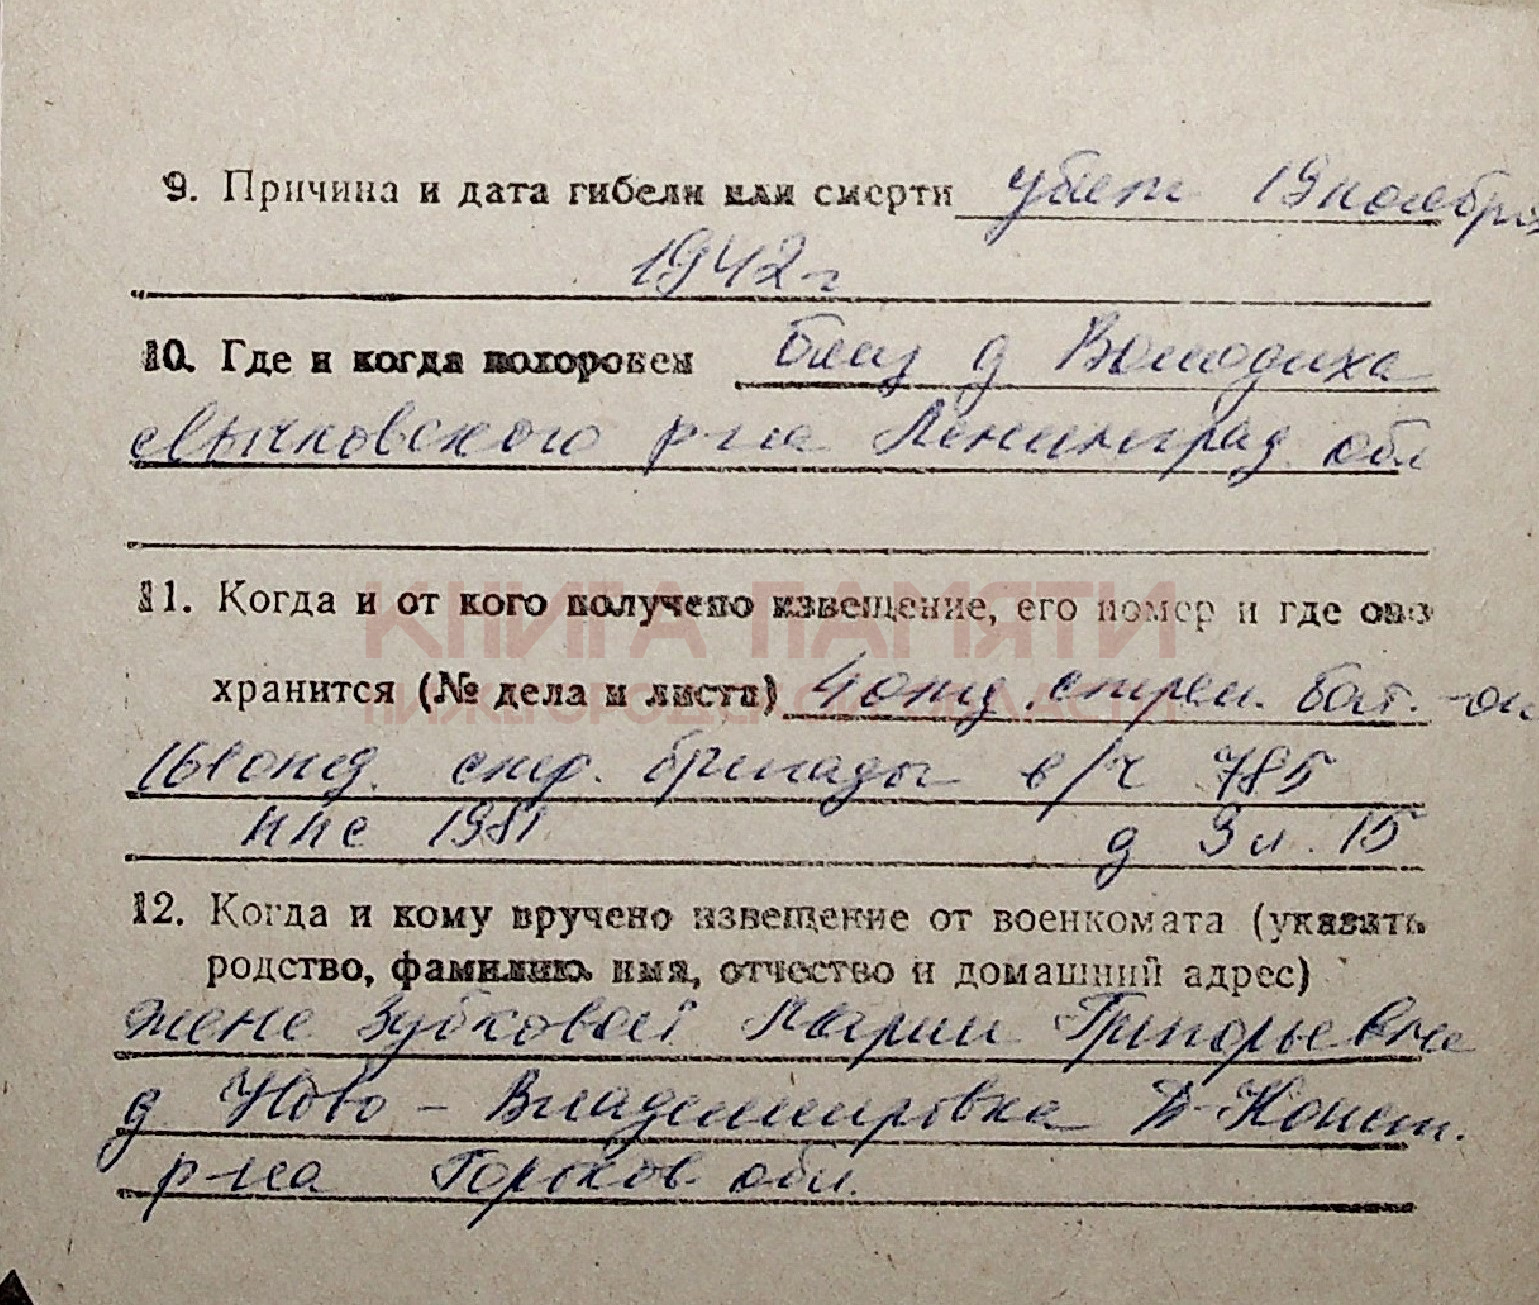 9. Причина и дата гибели или смерти убит 19 ноября
1942 г
10. Где и когда похоронен близ д Володиха
Лычковского р-на Ленинград обл
КНИГА ПАМЯТИ
11. Когда и от кого получено извещение, его номер и где оно
НИЖЕГОРОДСКОЙ ОБЛАСТИ
хранится (№ дела и листа) 4 отд. стрел. бат.-он
161 отд. стр. бригады в/ч 785
ппс 1981 д 9 л. 15
12. Когда и кому вручено извещение от военкомата (указать
родство, фамилию, имя, отчество и домашний адрес)
жене Зубковой Марии Григорьевне
д Ново-Владимировка Д-Конст.
р-на Горьков обл.